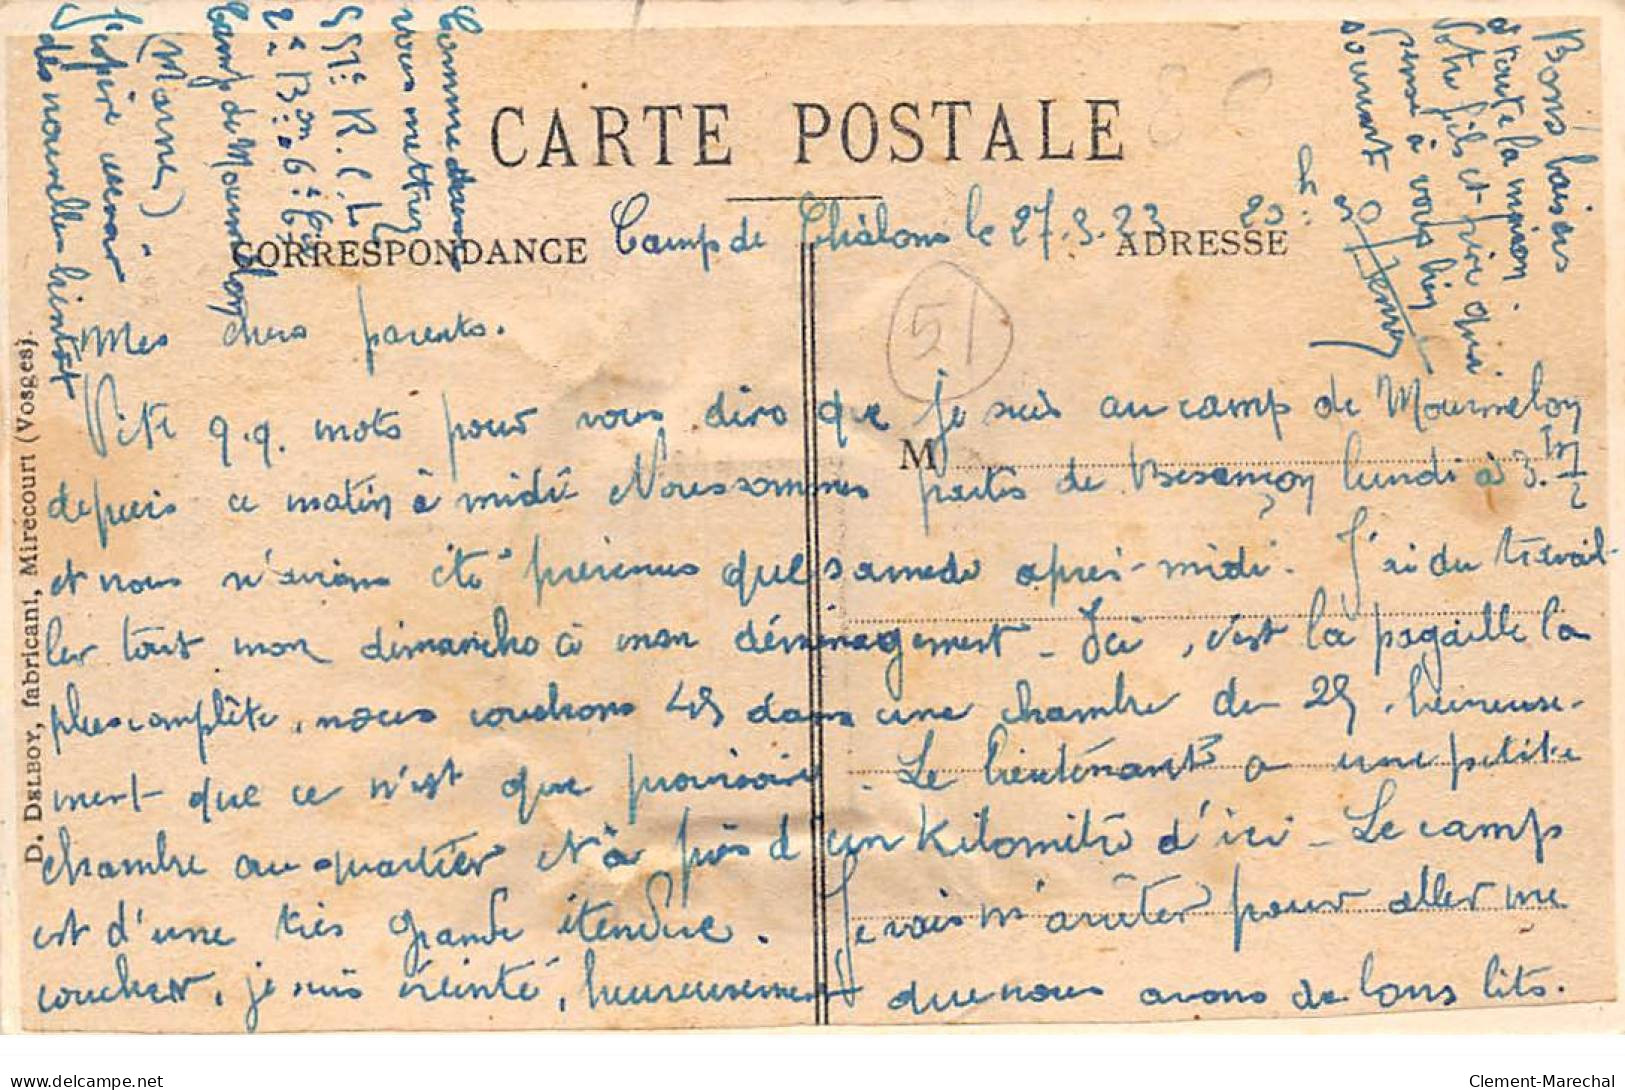 CARTE POSTALE
CORRESPONDANCE
ADRESSE
Camp de Châlons le 27.3.23 20h
51
M
Mes chers parents.
Vite q.q. mots pour vous dire que je suis au camp de Mourmelon
depuis ce matin à midi Nous sommes partis de Besançon lundi à 3.h 1/2
et nous n'avions été prévenus que samedi après-midi. J'ai du travail-
ler tout mon dimanche à mon déménagement - Ici, c'est la pagaille la
plus complète, nous couchons 45 dans une chambre de 25, heureuse-
ment que ce n'est que provisoire. Le lieutenant a une petite
chambre au quartier à près d'un kilomètre d'ici - Le camp
est d'une très grande étendue. Je vais m'arrêter pour aller me
coucher, je suis éreinté, heureusement que nous avons de bons lits.
Bons baisers
à toute la maison.
Votre fils et frère qui
pense à vous bien
souvent
Comme adresse
vous mettrez
R.C.L
2e Bon 6e Cie
Camp de Mourmelon
(Marne)
J'espère avoir
des nouvelles bientôt
D. DELBOY, fabricant, Mirecourt (Vosges).
delcampe.net
Clement-Marechal